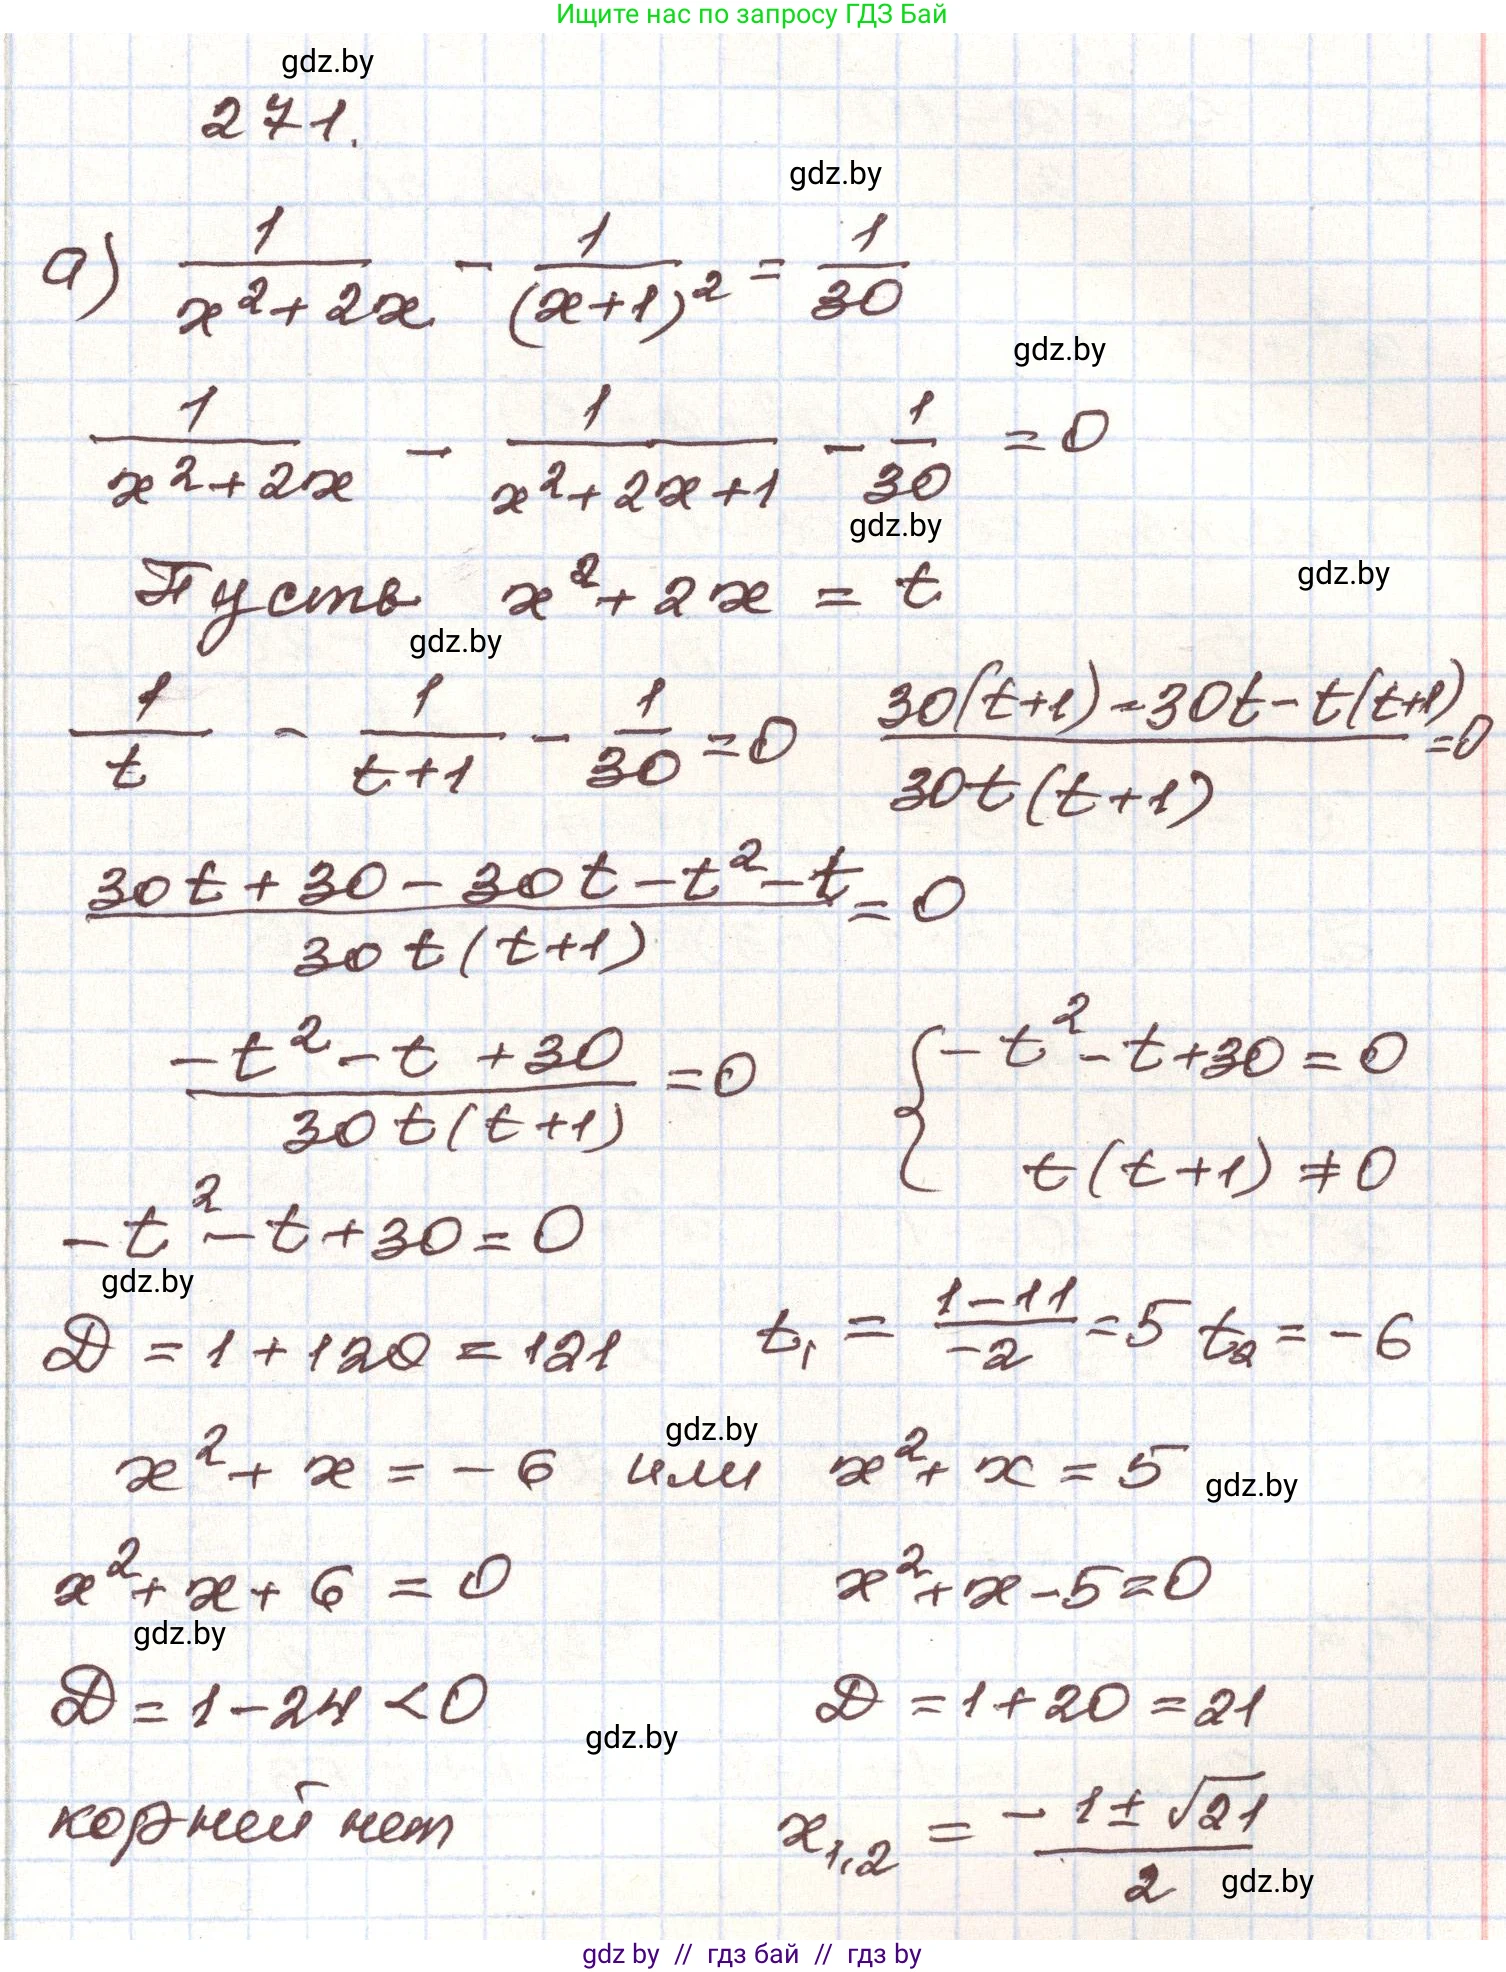 Ищите нас по запросу ГДЗ Бай
gdz.by
271.
gdz.by
а) 1/(x²+2x) - 1/(x+1)² = 1/30
gdz.by
1/(x²+2x) - 1/(x²+2x+1) - 1/30 = 0
gdz.by
Пусть x²+2x = t
gdz.by
gdz.by
1/t - 1/(t+1) - 1/30 = 0 (30(t+1)-30t-t(t+1))/(30t(t+1)) = 0
(30t+30-30t-t²-t)/(30t(t+1)) = 0
(-t²-t+30)/(30t(t+1)) = 0 { -t²-t+30=0
t(t+1)≠0
-t²-t+30=0
gdz.by
D=1+120=121 t₁ = (1-11)/(-2) = 5 t₂ = -6
gdz.by
x²+x=-6 или x²+x=5
gdz.by
x²+x+6=0 x²+x-5=0
gdz.by
D=1-24<0 D=1+20=21
gdz.by
корней нет x₁,₂ = (-1±√21)/2
gdz.by
gdz by // гдз бай // гдз by